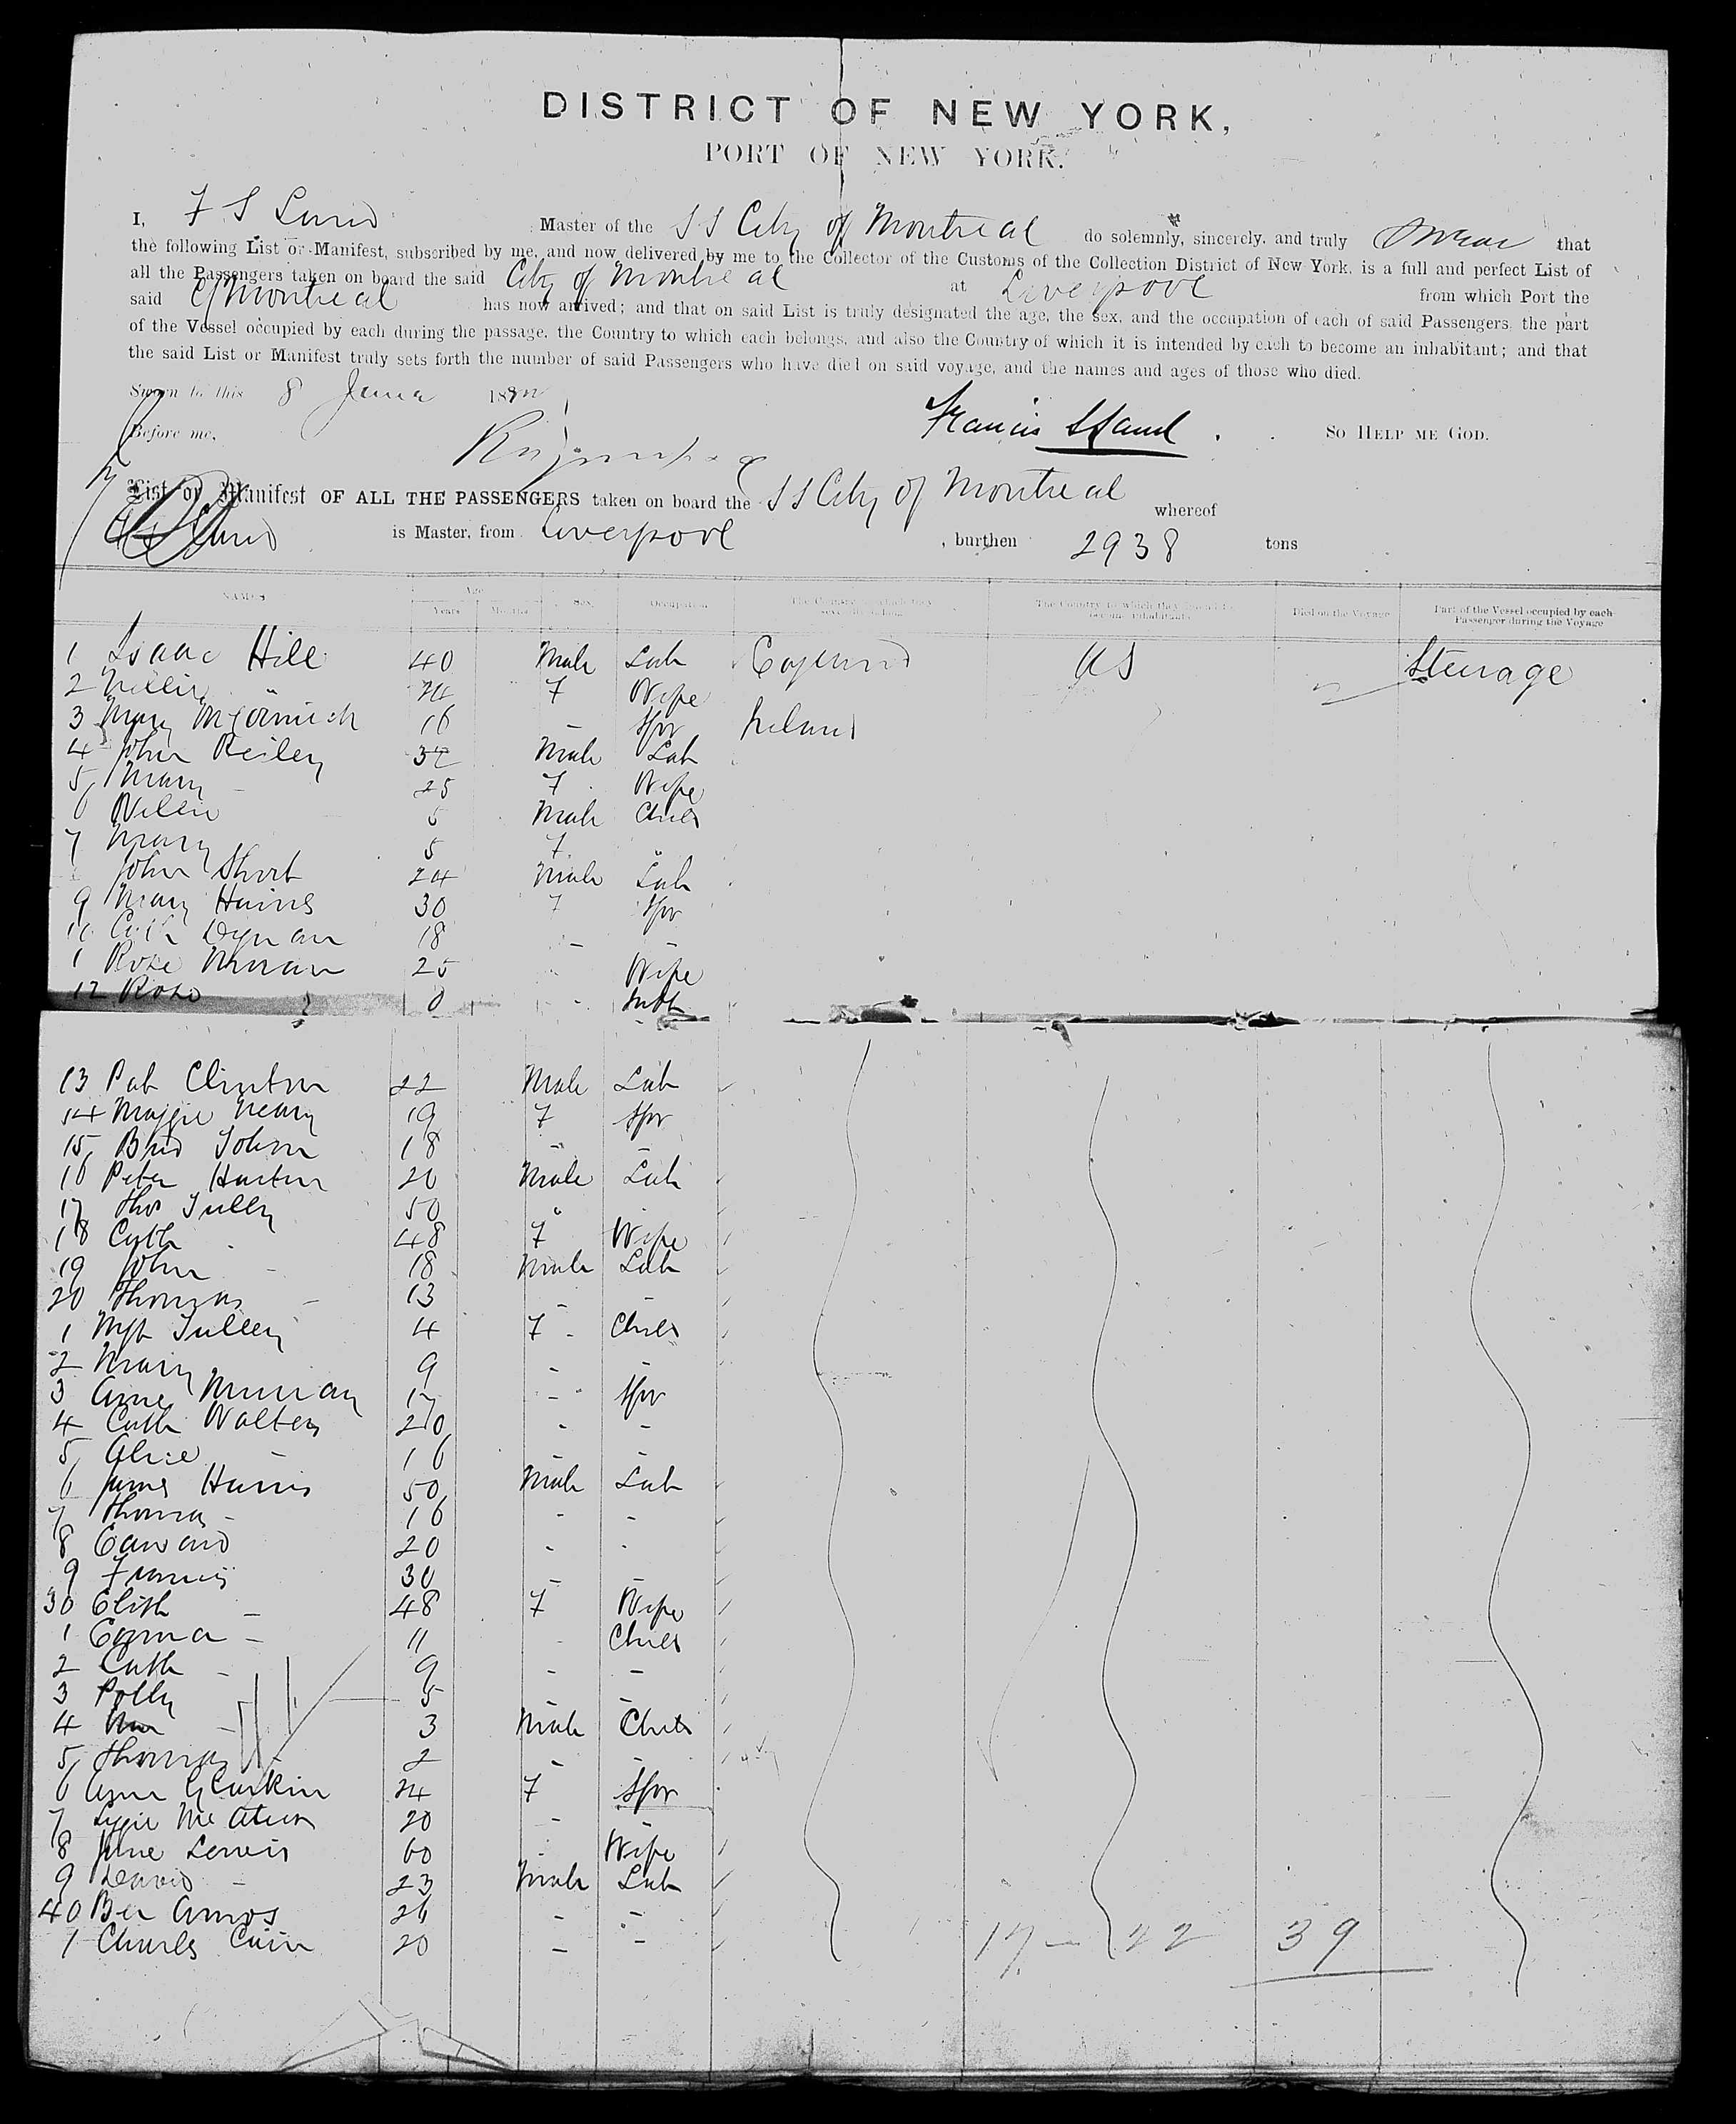 DISTRICT OF NEW YORK,
PORT OF NEW YORK.
I, F S Land Master of the S S City of Montreal do solemnly, sincerely, and truly Swear that
the following List or Manifest, subscribed by me, and now delivered by me to the Collector of the Customs of the Collection District of New York, is a full and perfect List of
all the Passengers taken on board the said City of Montreal at Liverpool from which Port the
said C of Montreal has now arrived; and that on said List is truly designated the age, the sex, and the occupation of each of said Passengers, the part
of the Vessel occupied by each during the passage, the Country to which each belongs, and also the Country of which it is intended by each to become an inhabitant; and that
the said List or Manifest truly sets forth the number of said Passengers who have died on said voyage, and the names and ages of those who died.
Sworn to this 8 188
Before me, Francis S Land SO HELP ME GOD.
List or Manifest OF ALL THE PASSENGERS taken on board the S S City of Montreal whereof
Land is Master, from Liverpool, burthen 2938 tons
NAMES Age Years Months Sex. Occupation The Country to which they severally belong The Country to which they intend to become inhabitants Died on the Voyage Part of the Vessel occupied by each Passenger during the Voyage
1 Isaac Hill 40 Male Lab England US Steerage
2 Nellie " 24 F Wife
3 Mary McCormick 16 - Spr Ireland
4 John Reiley 32 Male Lab
5 Mary - 25 F Wife
6 Willie 5 Male Child
7 Mary 5 F "
John Short 24 Male Lab
9 Mary Haines 30 F Spr
10 Cath 18 - -
1 Rose 25 " Wife
12 Rose 0 - Inft
13 Pat Clinton 22 Male Lab
14 Maggie Neary 19 F Spr
15 Brid 18 " -
16 Peter Harten 20 Male Lab
17 Thos Tully 50 "
18 Cath - 48 F Wife
19 John - 18 Male Lab
20 Thomas - 13 - -
1 Mgt Tulley 4 F - Child
2 Mary 9 - -
3 Anne 17 - Spr
4 Cath Walters 20 - -
5 Alice - 16 - -
6 James Harris 50 Male Lab
7 Thomas - 16 - -
8 Edward 20 - -
9 Francis 30 - -
30 Elisth - 48 F Wife
1 Emma - 11 - Child
2 Cath - 9 - -
3 Polly 5 -
4 Wm - 3 Male Child
5 Thomas - 2 - -
6 Ann 24 F Spr
7 20 -
8 Jane Lewis 60 Wife
9 David - 23 Male Lab
40 Ben Amos 26 - -
1 Charles Cain 20 - -
17 - 22 39